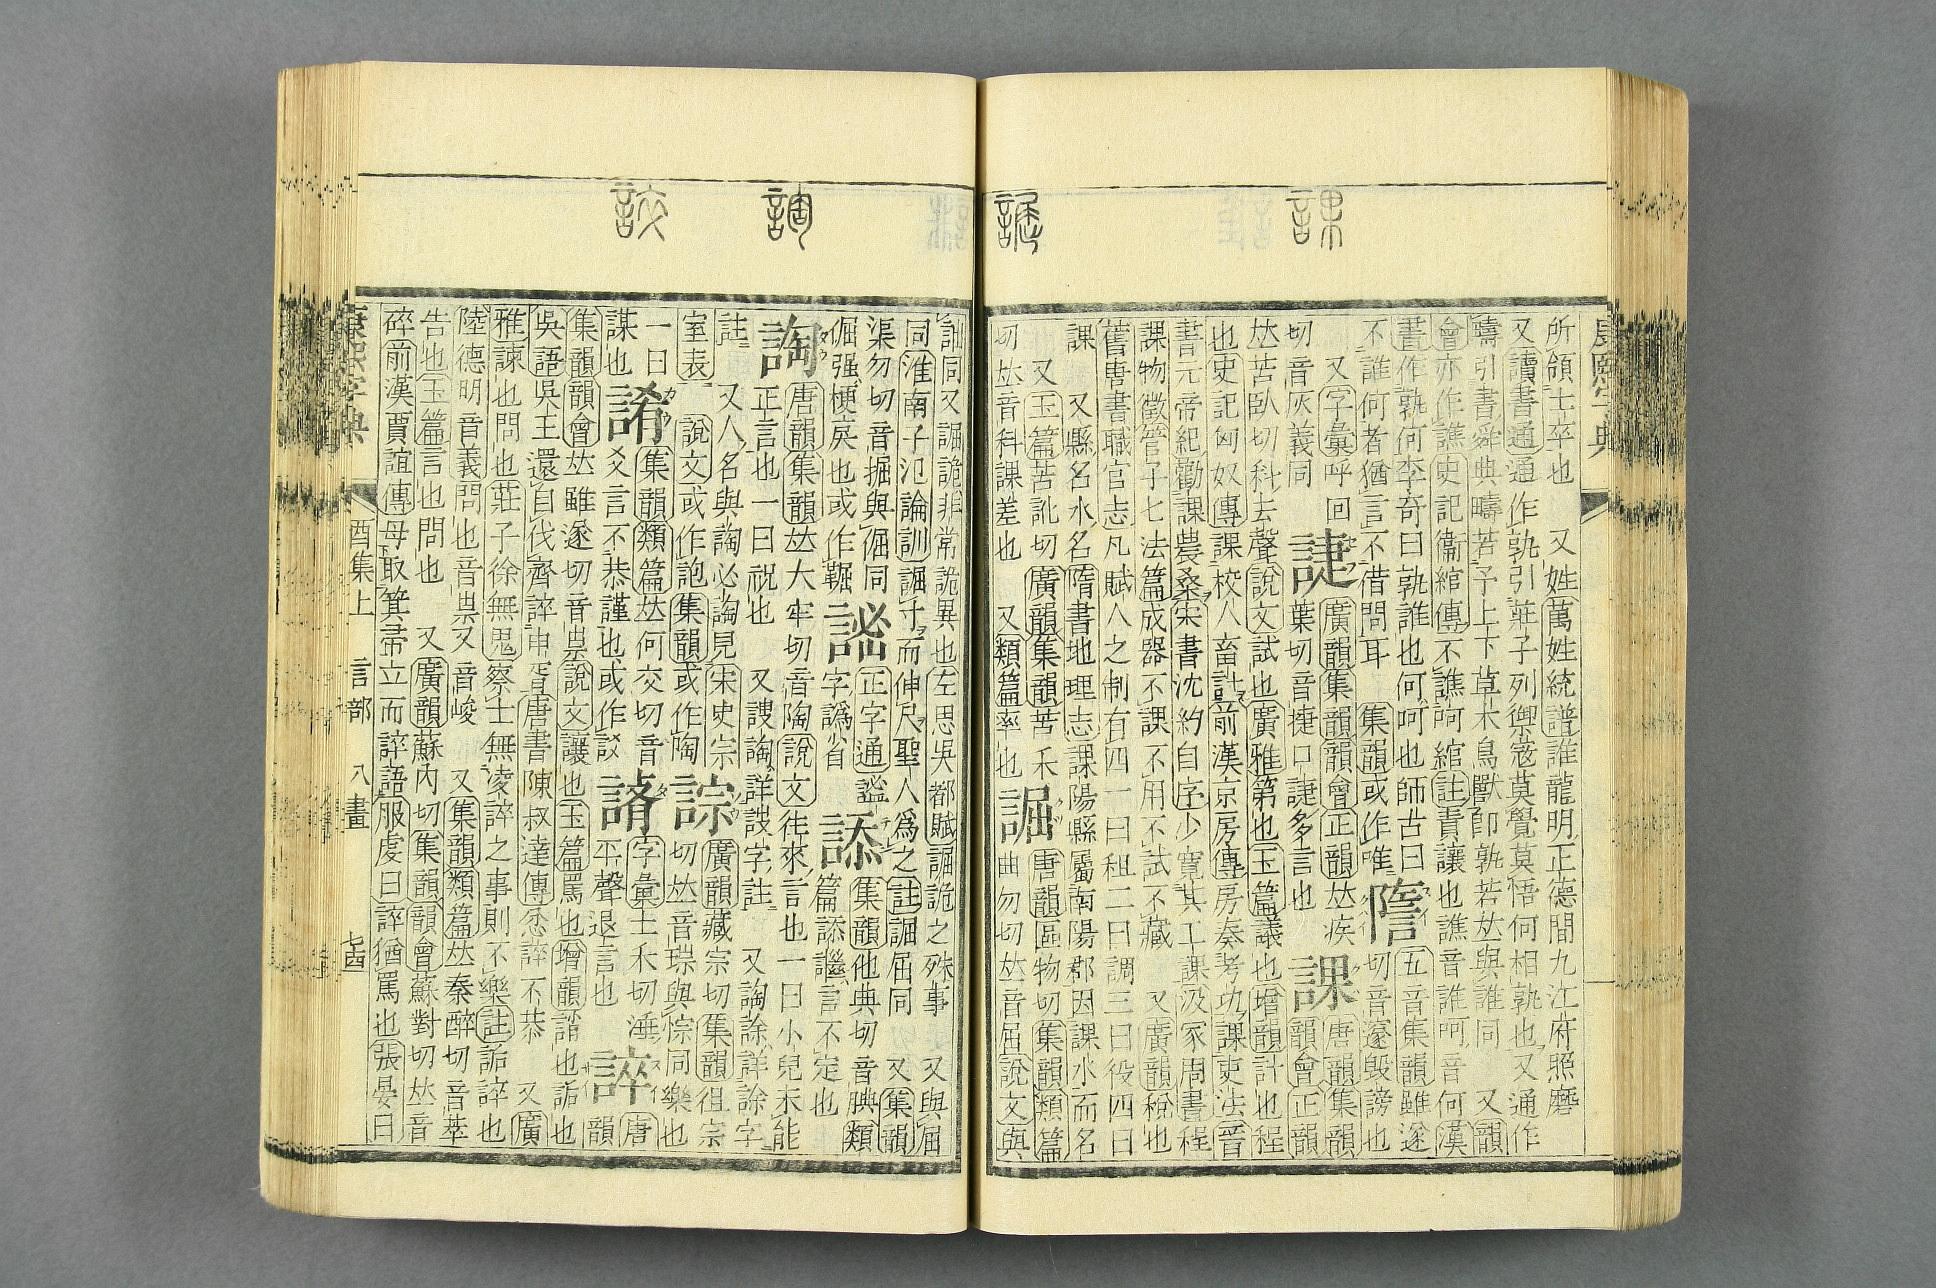 課
誳
詾
詨
康熙字典
所領士卒也　又姓萬姓統譜誰龍明正德間九江府照磨
又讀書通通作孰引莊子列禦寇莫覺莫悟何相孰也又通作
疇引書舜典疇若予上下草木鳥獸卽孰若𠀤與誰同　又韻
會亦作譙史記衞綰傳不譙呵綰註責讓也譙音誰呵音何漢
書作孰何李奇曰孰誰也何呵也師古曰
不誰何者猶言不借問耳　集韻或作唯　五音集韻雖遂切音邃毀謗也
又字彙呼回切音灰義同　誱　廣韻集韻韻會正韻𠀤疾葉切音捷口誱多言也　課　唐韻集韻韻會正韻
𠀤苦臥切科去聲說文試也廣雅第也玉篇議也增韻計也程
也史記匈奴傳課校人畜計前漢京房傳房奏考功課吏法晉
書元帝紀勸課農桑宋書沈約自序少寬其工課汲冢周書程
課物徵管子七法篇成器不課不用不試不藏　又廣韻稅也
舊唐書職官志凡賦人之制有四一曰租二曰調三曰役四曰
課　又縣名水名隋書地理志課陽縣屬南陽郡因課水而名
又玉篇苦訛切廣韻集韻苦禾切𠀤音科課差也　又類篇率也　誳　唐韻區物切集韻類篇曲勿切𠀤音屈說文與
詘同又誳詭非常詭異也左思吳都賦誳詭之殊事　又與屈
同淮南子氾論訓誳寸而伸尺聖人爲之註誳屈同　又集韻
渠勿切音掘與倔同倔强梗戾也或作䩐　謐　正字通謐字譌省　誴　集韻他典切音腆類篇誴䜌言不定也
詾　唐韻集韻𠀤大牢切音陶說文往來言也一曰小兒未能
正言也一曰祝也　又謏詾詳謏字註　又詾詺詳詺字
註　又人名與詾必詾見宋史宗室表　說文或作詢集韻或作陶　誴　廣韻藏宗切集韻徂宗切𠀤音琮與悰同樂也
一曰謀也　誵　集韻類篇𠀤何交切音爻言不恭謹也或作詨　字彙土禾切　平聲退言也　誶　唐韻
集韻韻會𠀤雖遂切音祟說文讓也玉篇罵也增韻誚也詬也
吳語吳王還自伐齊誶申胥唐書陳叔達傳忿誶不恭　又廣
雅諫也問也莊子徐無鬼察士無凌誶之事則不樂註詬誶也
陸德明音義問也音祟又音峻　又集韻類篇𠀤秦醉切音萃
告也玉篇言也問也　又廣韻蘇內切集韻韻會蘇對切𠀤音
碎前漢賈誼傳母取箕帚立而誶語服虔曰誶猶罵也張晏曰
康熙字典　酉集上　言部　八畫　七四